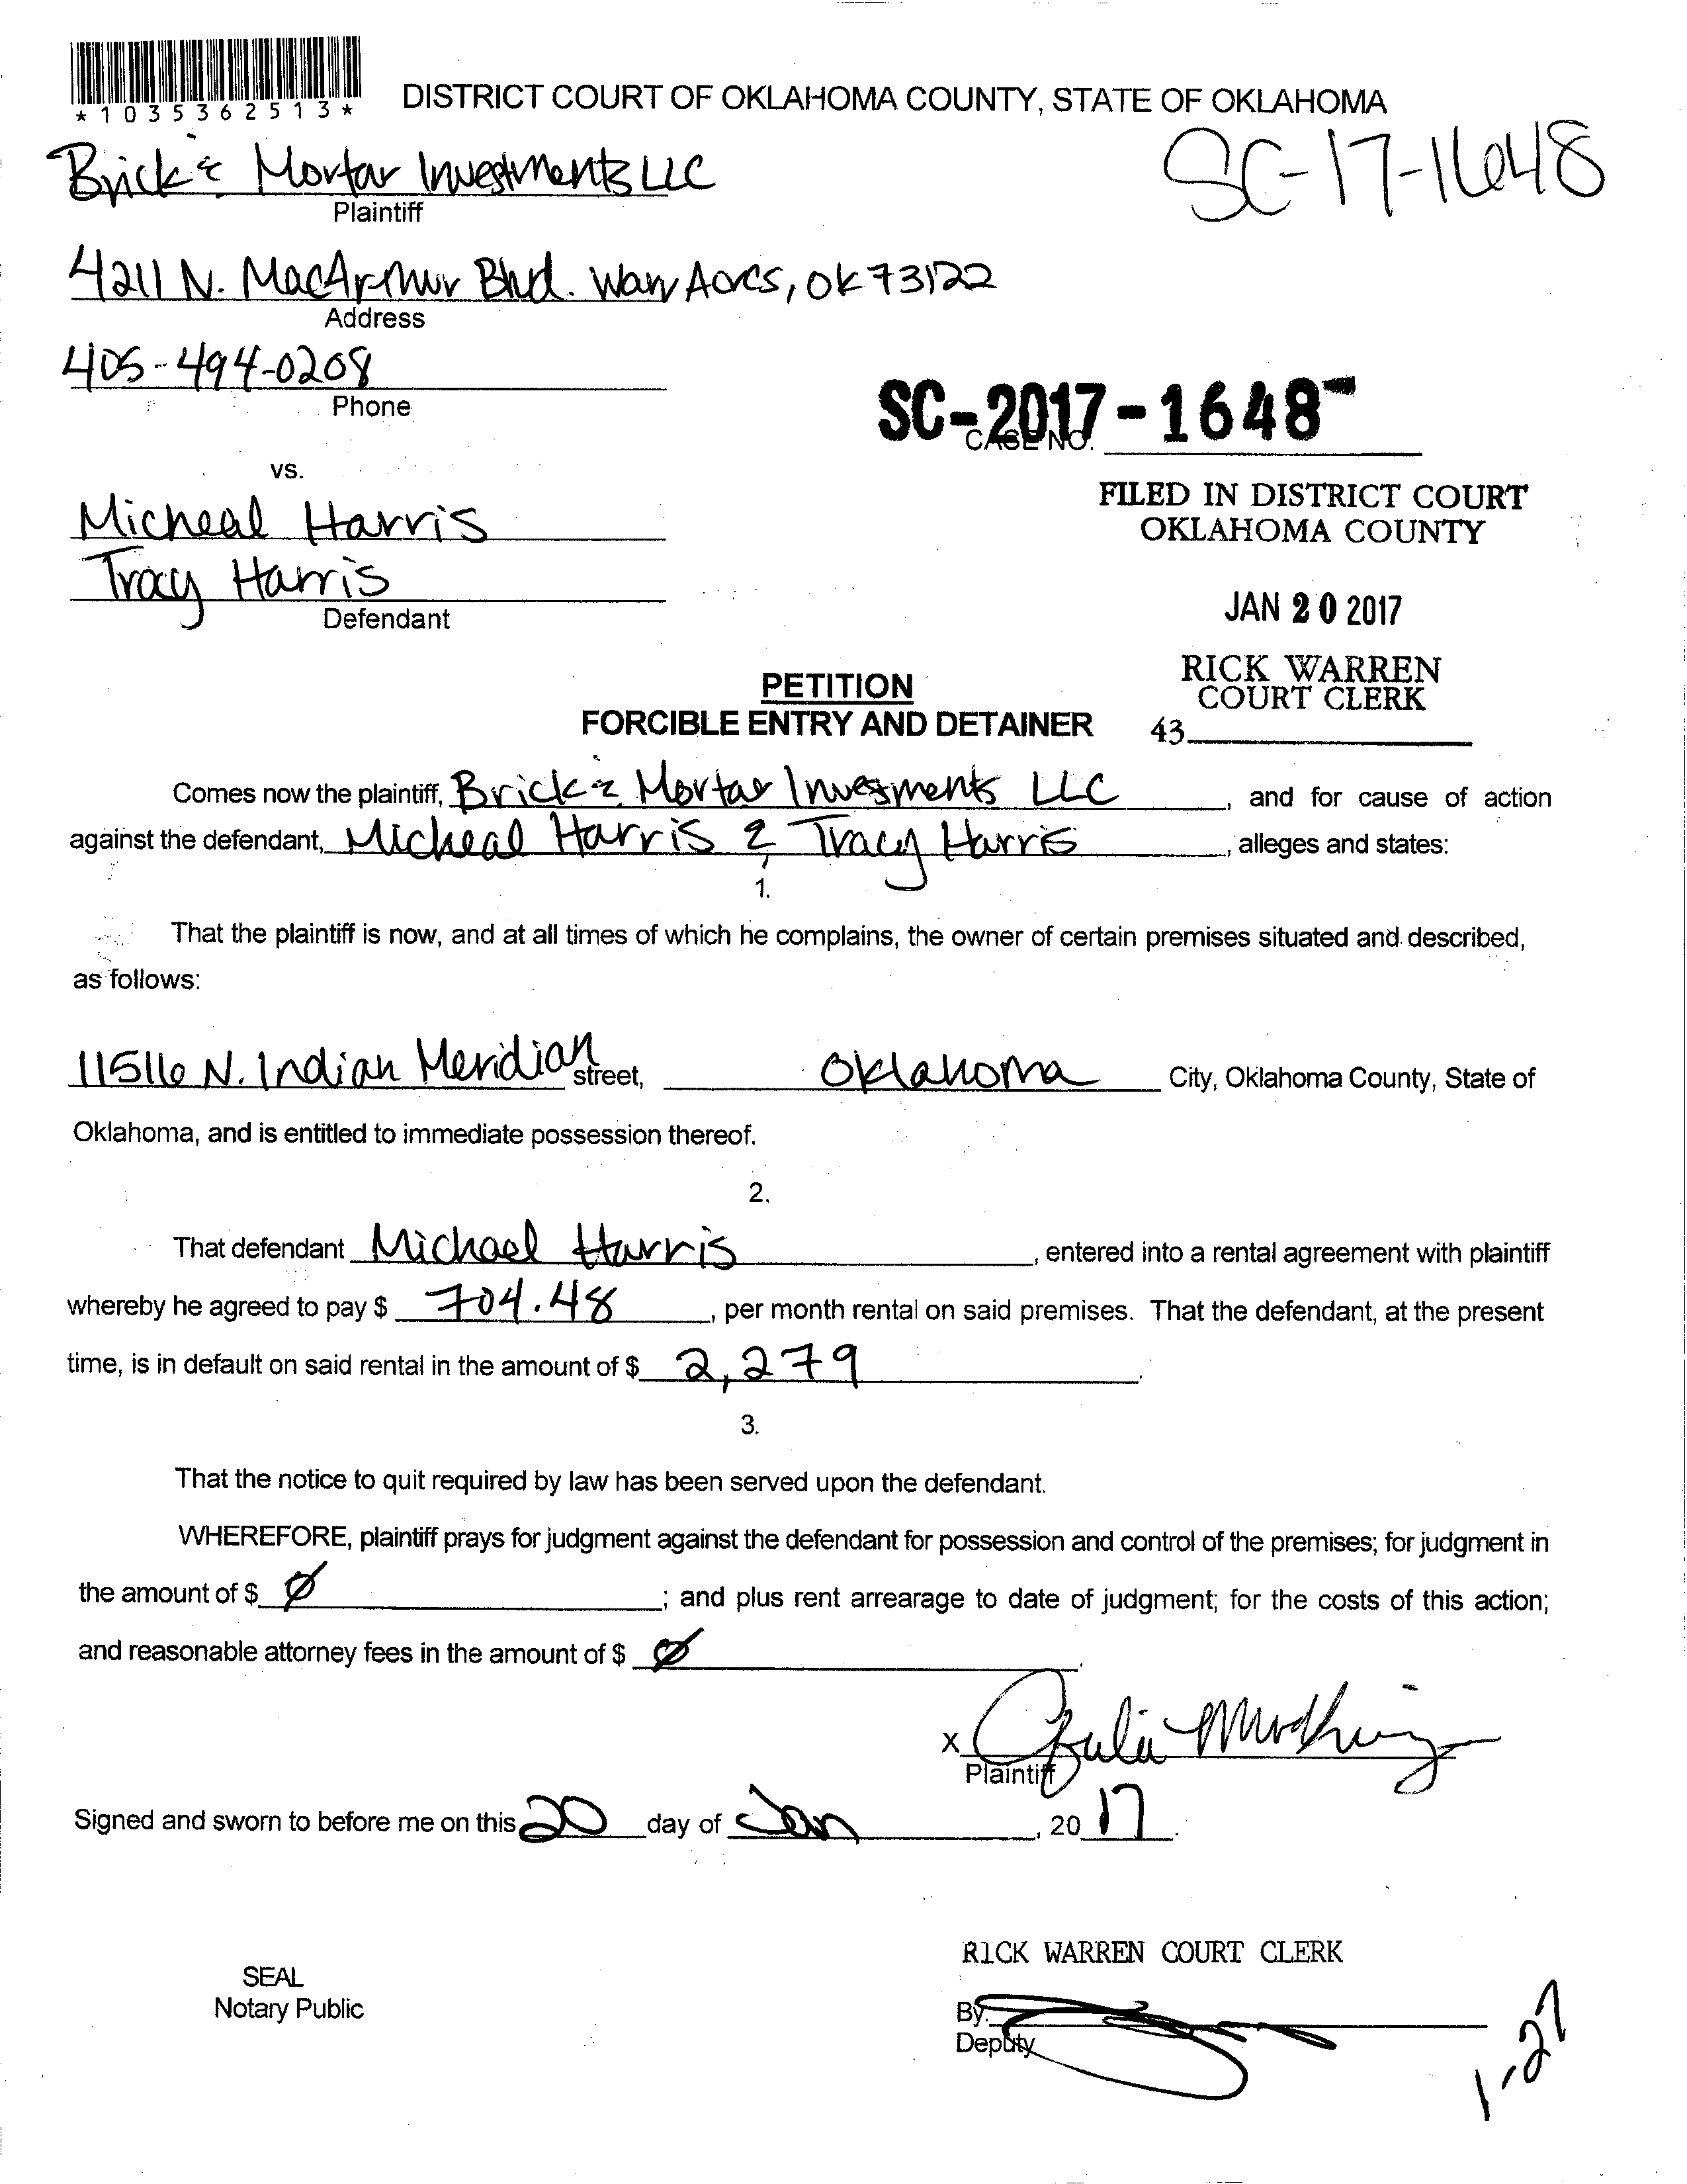 *1035362513*
DISTRICT COURT OF OKLAHOMA COUNTY, STATE OF OKLAHOMA
SC-17-1648
Brick & Mortar Investments LLC
Plaintiff
4211 N. MacArthur Blvd. Warr Acres, OK 73122
Address
405-494-0208
Phone
SC-2017-1648
CASE NO.
vs.
FILED IN DISTRICT COURT
OKLAHOMA COUNTY
Micheal Harris
Tracy Harris
Defendant
JAN 20 2017
RICK WARREN
COURT CLERK
43
PETITION
FORCIBLE ENTRY AND DETAINER
Comes now the plaintiff, Brick & Mortar Invesments LLC, and for cause of action
against the defendant, Micheal Harris & Tracy Harris, alleges and states:
1.
That the plaintiff is now, and at all times of which he complains, the owner of certain premises situated and described,
as follows:
11516 N. Indian Meridian street, Oklahoma City, Oklahoma County, State of
Oklahoma, and is entitled to immediate possession thereof.
2.
That defendant Michael Harris, entered into a rental agreement with plaintiff
whereby he agreed to pay $ 704.48, per month rental on said premises. That the defendant, at the present
time, is in default on said rental in the amount of $ 2,279.
3.
That the notice to quit required by law has been served upon the defendant.
WHEREFORE, plaintiff prays for judgment against the defendant for possession and control of the premises; for judgment in
the amount of $ Ø; and plus rent arrearage to date of judgment; for the costs of this action;
and reasonable attorney fees in the amount of $ Ø.
X
Plaintiff
Signed and sworn to before me on this 20 day of Jan, 20 17.
RICK WARREN COURT CLERK
SEAL
Notary Public
By:
Deputy
1-27